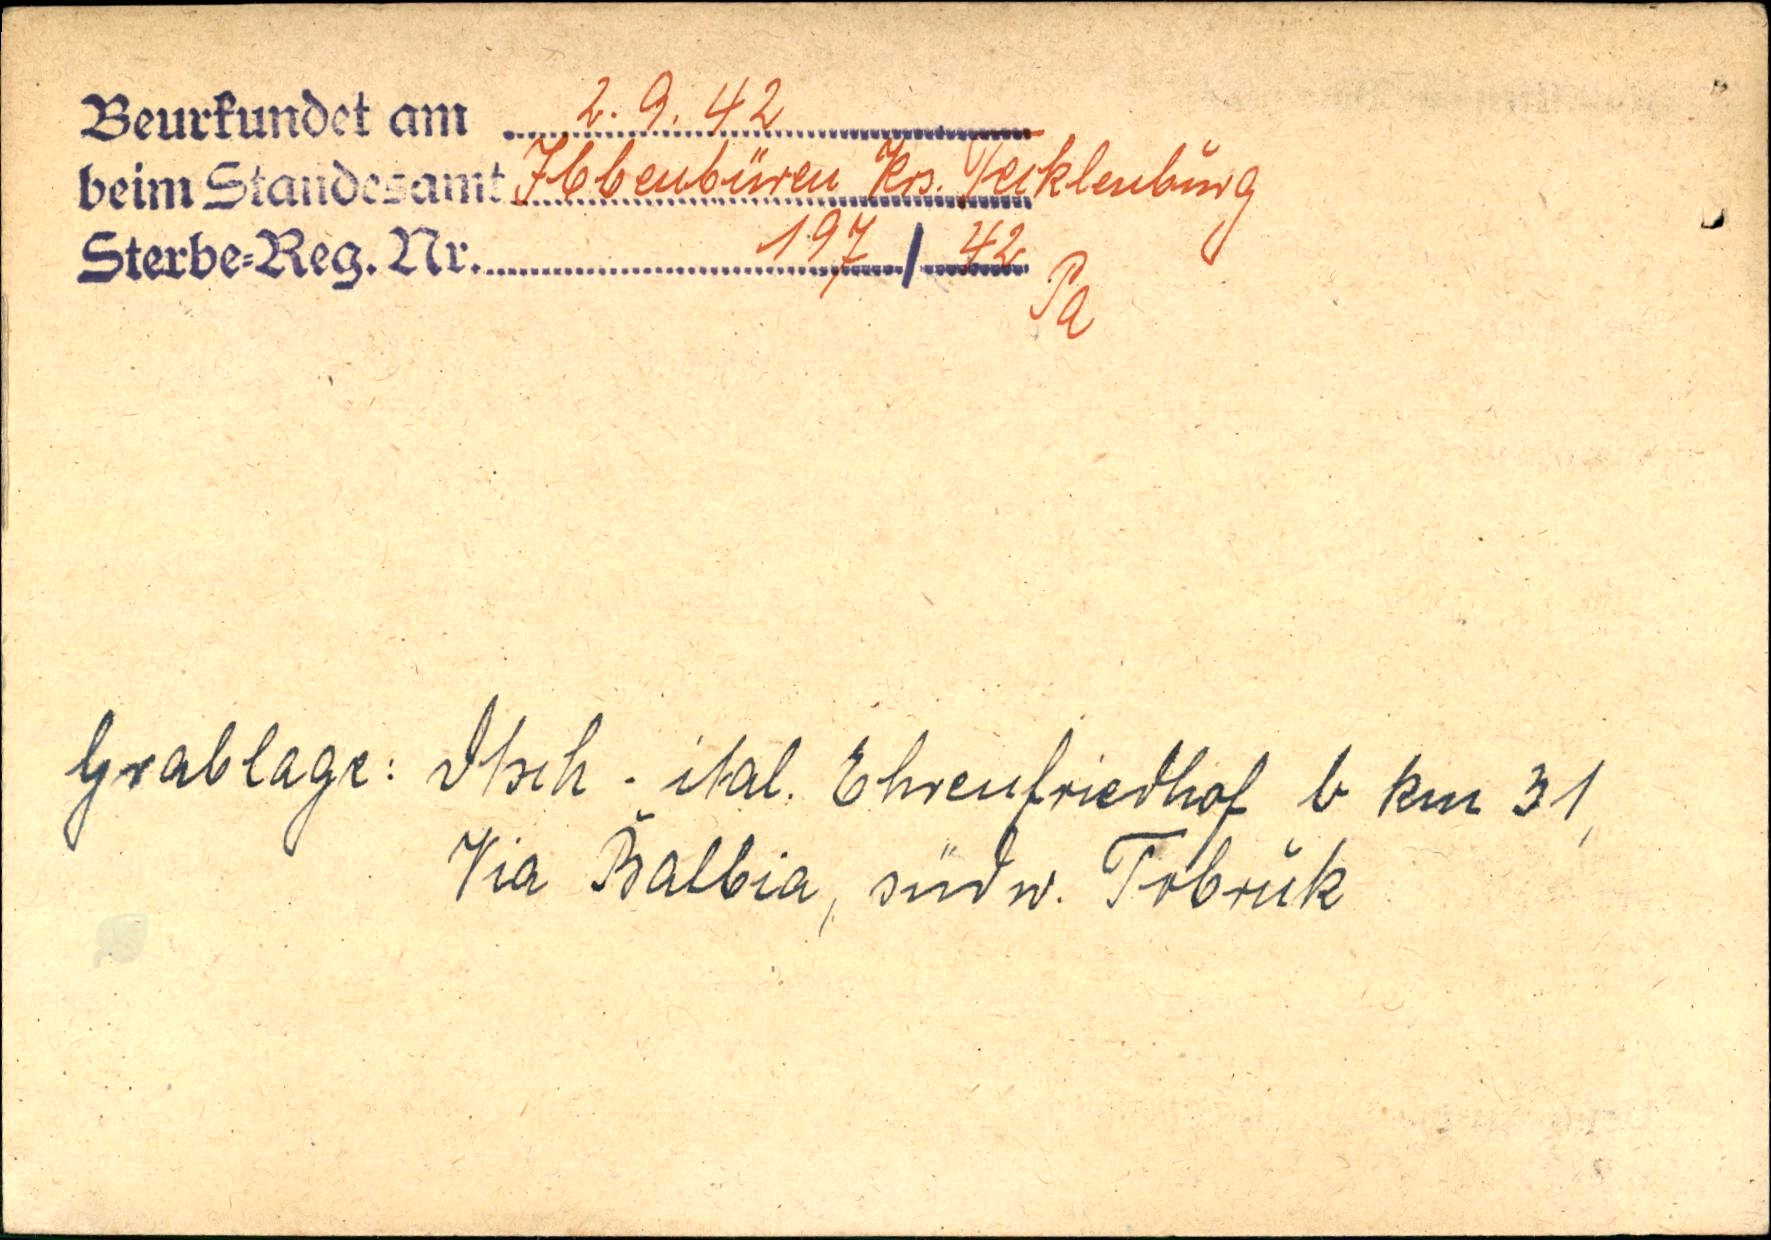 Beurkundet am 2.9.42
beim Standesamt Ibbenbüren Krs. Tecklenburg
Sterbe=Reg. Nr. 197 / 42
Pa
Grablage: Dtsch - ital. Ehrenfriedhof b km 31,
Via Balbia, südw. Tobruk